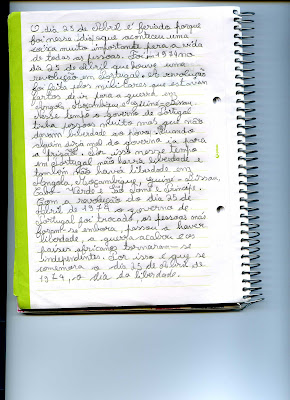 O dia 25 de Abril é feriado porque
foi nesse dia que aconteceu uma
coisa muito importante para a vida
de todas as pessoas. Foi em 1974 no
dia 25 de Abril que houve uma
revolução em Portugal. A revolução
foi feita pelos militares que estavam
fartos de ir para a guerra em
Angola, Moçambique e Guiné-Bissau.
Nesse tempo o governo de Portugal
tinha pessoas muito más que não
davam liberdade ao povo. Quando
alguém dizia mal do governo ia para
a prisão. Por isso nesse tempo
em Portugal não havia liberdade e
também não havia liberdade em
Angola, Moçambique, Guiné-Bissau,
Cabo-Verde e São Tomé e Príncipe.
Com a revolução do dia 25 de
Abril de 1974 o governo de
Portugal foi trocado, as pessoas más
foram-se embora, passou a haver
liberdade, a guerra acabou e os
países africanos tornaram-se
independentes. Por isso é que se
comemora o dia 25 de Abril de
1974, o dia da liberdade.